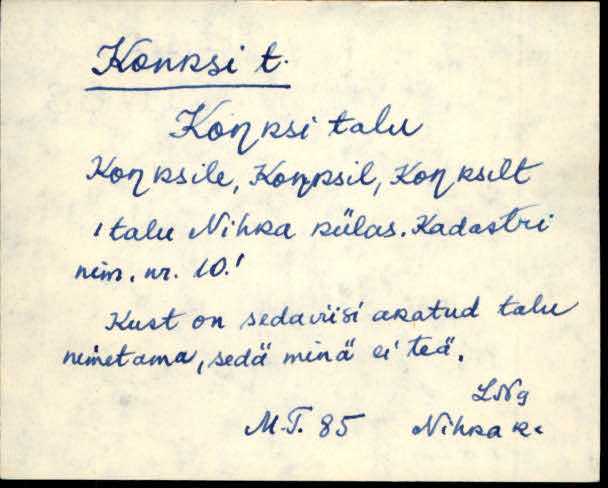 Konksi t.
Koŋksi talu
Koŋksile, Koŋksil, Koŋksilt
'talu Nihka külas. Kadastri
nim. nr. 10.'
Kust on sedaviisi akatud talu
nimetama, sedä minä ei teä.
LNg
M.T. 85 Nihka k.